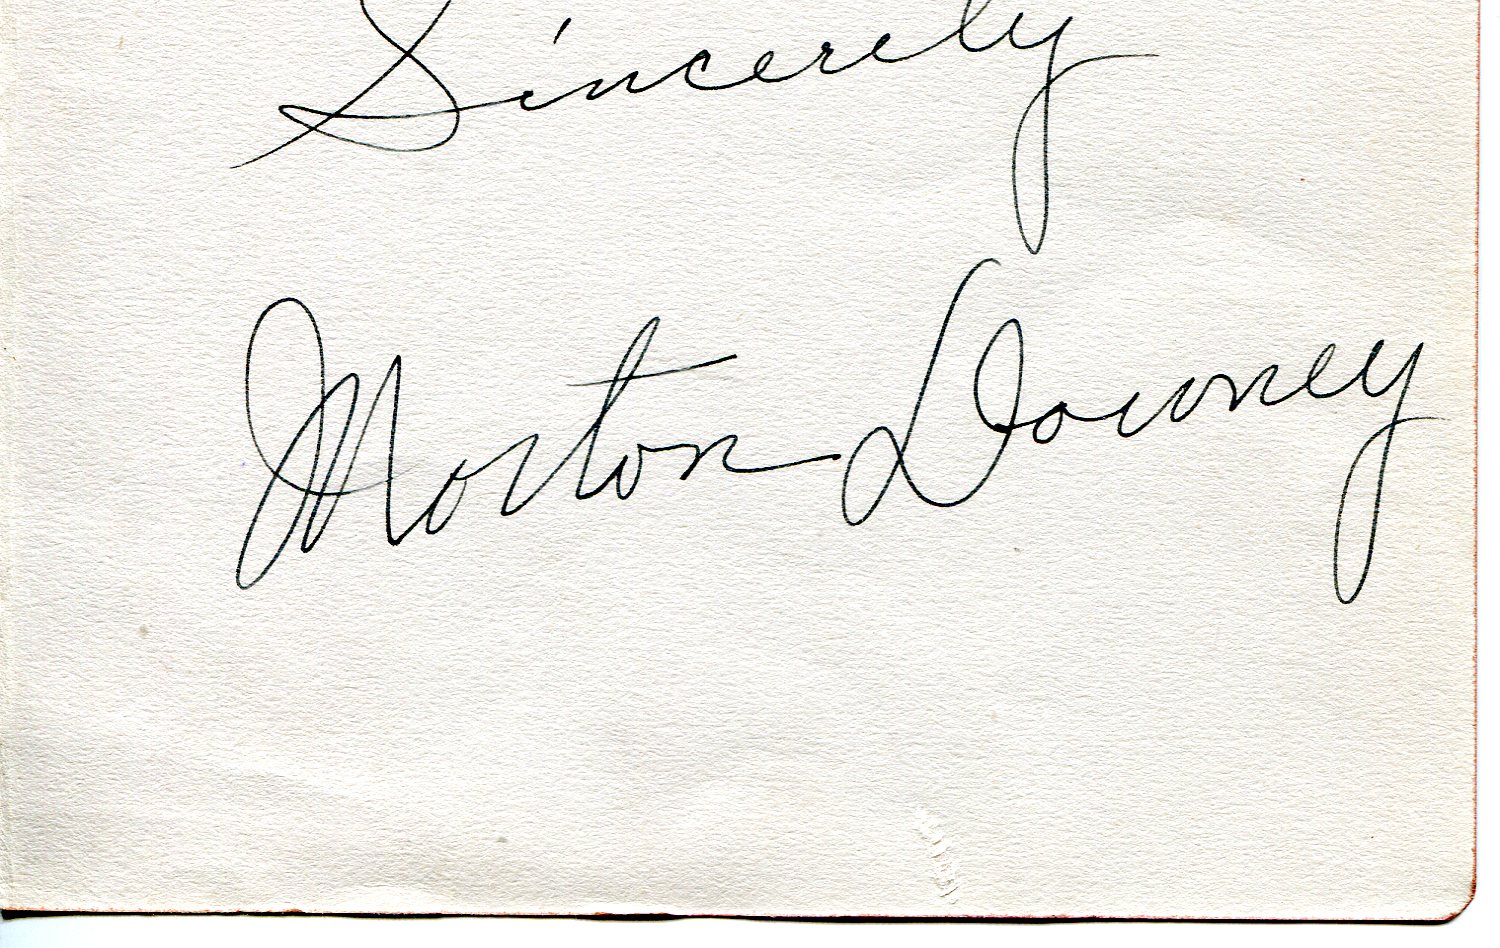 Sincerely
Morton Downey